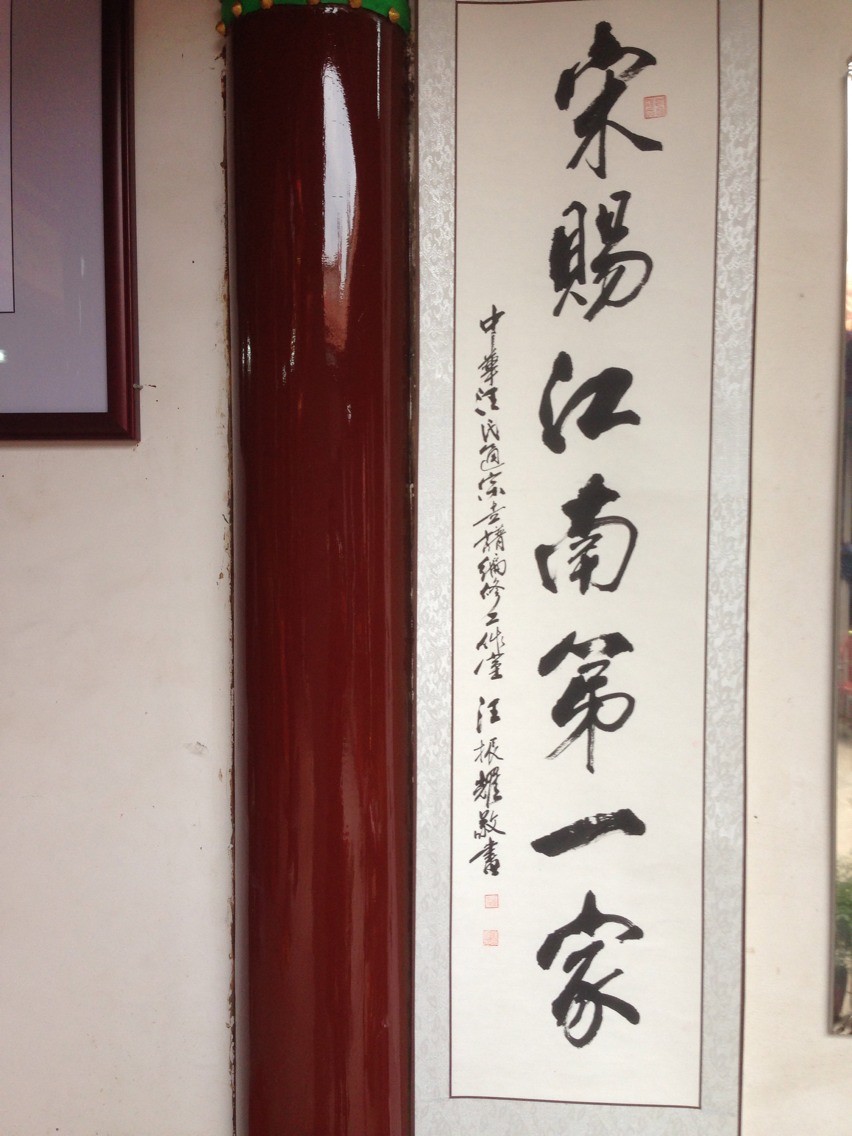 宋赐江南第一家
中华汪氏通宗世谱编修工作室 汪振耀敬书